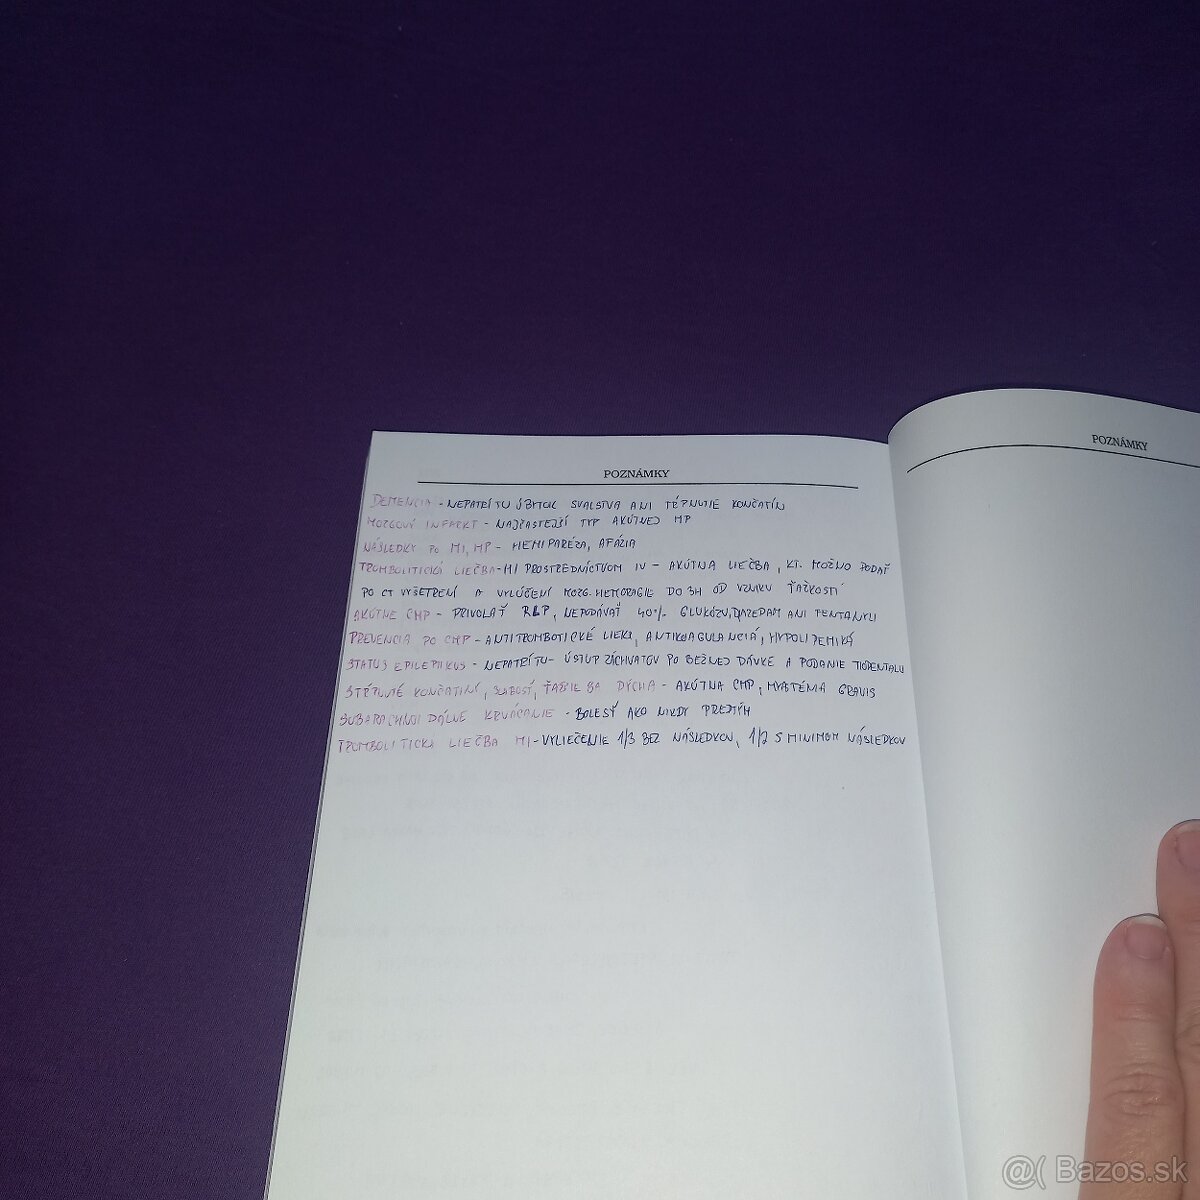 POZNÁMKY
POZNÁMKY
DEMENCIA - NEPATRÍ TU ÚBYTOK SVALSTVA ANI TŔPNUTIE KONČATÍN
MOZGOVÝ INFARKT - NAJČASTEJŠÍ TYP AKÚTNEJ MP
NÁSLEDKY PO MI, MP - HEMIPARÉZA, AFÁZIA
TROMBOLITICKÁ LIEČBA - MI PROSTREDNÍCTVOM IV - AKÚTNA LIEČBA, KT. MOŽNO PODAŤ
PO CT VYŠETRENÍ A VYLÚČENÍ MOZG. HEMORAGIE DO 3H OD VZNIKU ŤAŽKOSTÍ
AKÚTNE CMP - PRIVOLAŤ RLP, NEPODÁVAŤ 40% GLUKÓZU, DIAZEPAM ANI FENTANYLI
PREVENCIA PO CMP - ANTITROMBOTICKÉ LIEKY, ANTIKOAGULANCIÁ, HYPOLIPEMIKÁ
STATUS EPILEPTIKUS - NEPATRÍ TU - ÚSTUP ZÁCHVATOV PO BEŽNEJ DÁVKE A PODANIE TIOPENTALU
STŔPNUTÉ KONČATINY, SLABOSŤ, ŤAŽŠIE SA DÝCHA - AKÚTNA CMP, MYASTÉMIA GRAVIS
SUBARACHNOIDÁLNE KRVÁCANIE - BOLESŤ AKO NIKDY PREDTÝM
TROMBOLITICKÁ LIEČBA MI - VYLIEČENIE 1/3 BEZ NÁSLEDKOV, 1/2 S MINIMOM NÁSLEDKOV
@( Bazos.sk